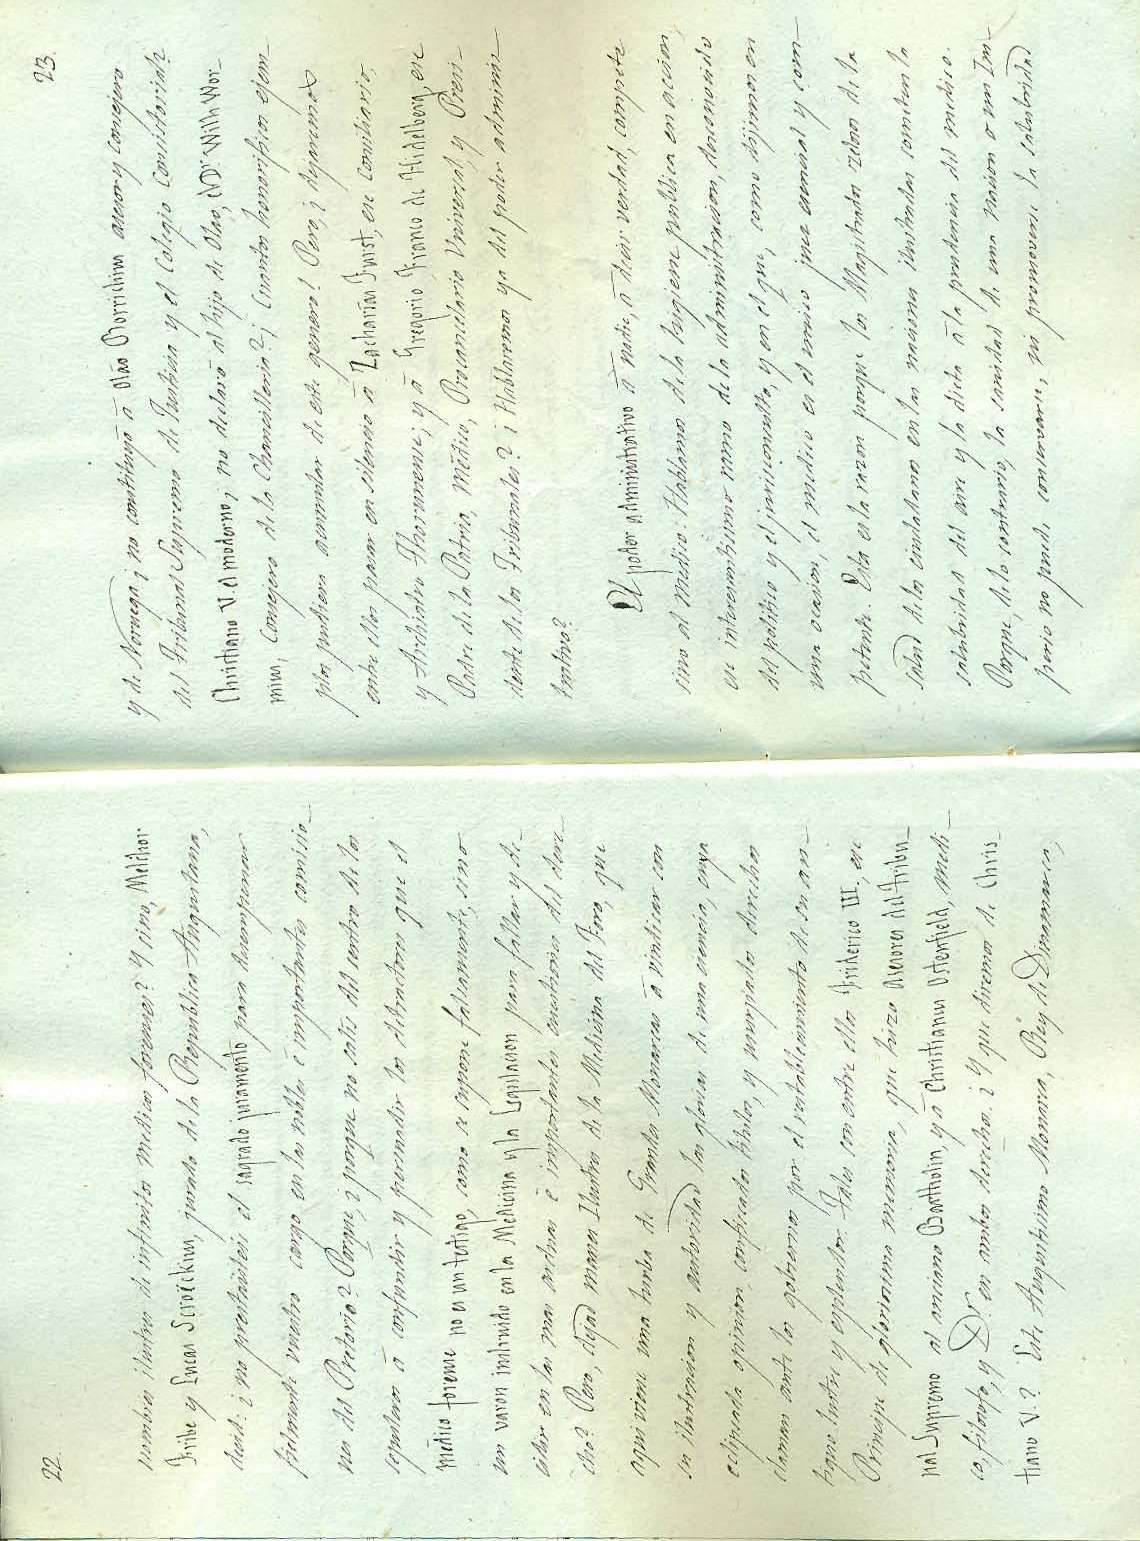 22.
nombres ilustres de infinitos medicos forenses? Y sino, Melchor
Fribe y Lucas Scroëckius, jurado de la Republica Augustana,
decid: ¿ no prestásteis el sagrado juramento para desempeñar
fielmente vuestro cargo en las nobles é importantes comisio-
nes del Pretorio? Porque, ¿ porque no salís del centro de los
sepulcros á confundir y persuadir los detractores que el
médico forense no es un testigo, como se supone falsamente, sino
un varon instruido en la Medicina y la Legislacion para fallar y de-
cidir en las mas arduas é importantes cuestiones del dere-
cho? Pero, dejad manes Ilustres de la Medicina del Foro, que
aqui viene una turba de Grandes Monarcas á vindicar con
su ilustracion y autoridad las glorias de una ciencia, cuya
eclipsada opinion, confiscados titulos, y usurpados derechos
claman ante los gobiernos por el restablecimiento de su an-
tiguo lustre y esplendor. Tales son entre ellos Friderico III, ese
Principe de gloriosa memoria, que hizo asesores del Tribu-
nal Supremo al anciano Bartholin, y á Christianus Ostenfeld, medi-
co, filosofo, y Dr. en ambos derechos. ¿ Y que diremos de Chris-
tiano V.? Este Augustisimo Monarca, Rey de Dinamarca,
23.
y de Noruega ¿ no constituyó á Oláo Borrichius asesor y consejero
del Tribunal Supremo de Justicia y el Colegio Consistorial?
Christiano V. el moderno, ¿ no declaró al hijo de Olao, el Dr. Wilh Wor-
mius, consejero de la Chancillería? ¡ Cuantos honoríficos ejem-
plos pudiera acumular de este genero! Pero, ¿ dejaremos
entre ellos pasar en silencio á Zacharias Furst, ese consiliario,
y Archiatro Thorunense; y á Gregorio Franco de Hidelberg, ese
Padre de la Patria, Médico, Procancelario Universal, y Presi-
dente de los Tribunales? ¿ Hablaremos ya del poder adminis-
trativo?
El poder administrativo á nadie, á decir verdad, compete
sino al medico. Hablamos de la higiene publica en accion,
ese interesantisimo ramo de la administracion, desconocido
del politico y el jurisconsulto, y en el que, como dijimos en
una ocasion, el medico es el unico juez esencial y com-
petente. Esta es la razon porque los Magistrados zelosos de la
salud de los ciudadanos en las naciones ilustradas cometen la
salubridad del aire y la dieta á la prudencia del medico.
Porque, de lo contrario, la sanidad de una nacion o un Im-
perio no puede conservarse, ni promoverse la salubridad